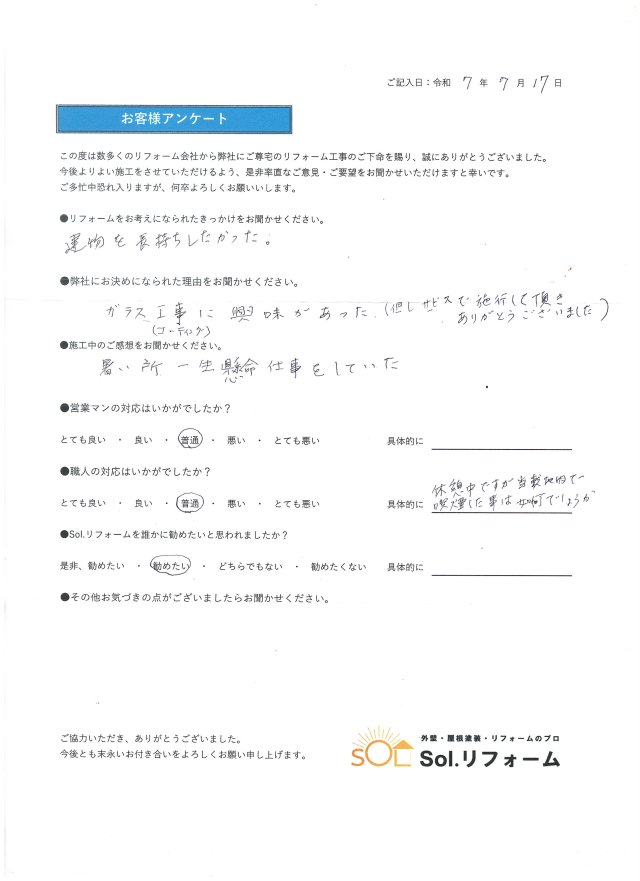 ご記入日：令和 7 年 7 月 17 日
お客様アンケート
この度は数多くのリフォーム会社から弊社にご尊宅のリフォーム工事のご下命を賜り、誠にありがとうございました。
今後よりよい施工をさせていただけるよう、是非率直なご意見・ご要望をお聞かせいただけますと幸いです。
ご多忙中恐れ入りますが、何卒よろしくお願いいします。
●リフォームをお考えになられたきっかけをお聞かせください。
建物を長持ちしたかった。
●弊社にお決めになられた理由をお聞かせください。
ガラス工事に興味があった（但しサービスで施行して頂き
(コーティング)
ありがとうございました）
●施工中のご感想をお聞かせください。
暑い所一生懸命仕事をしていた
●営業マンの対応はいかがでしたか？
とても良い ・ 良い ・ 普通 ・ 悪い ・ とても悪い 具体的に
●職人の対応はいかがでしたか？
休憩中ですが当敷地内で
とても良い ・ 良い ・ 普通 ・ 悪い ・ とても悪い 具体的に 喫煙した事は如何でしょうか
●Sol.リフォームを誰かに勧めたいと思われましたか？
是非、勧めたい ・ 勧めたい ・ どちらでもない ・ 勧めたくない 具体的に
●その他お気づきの点がございましたらお聞かせください。
ご協力いただき、ありがとうございました。
今後とも末永いお付き合いをよろしくお願い申し上げます。
外壁・屋根塗装・リフォームのプロ
SOL Sol.リフォーム